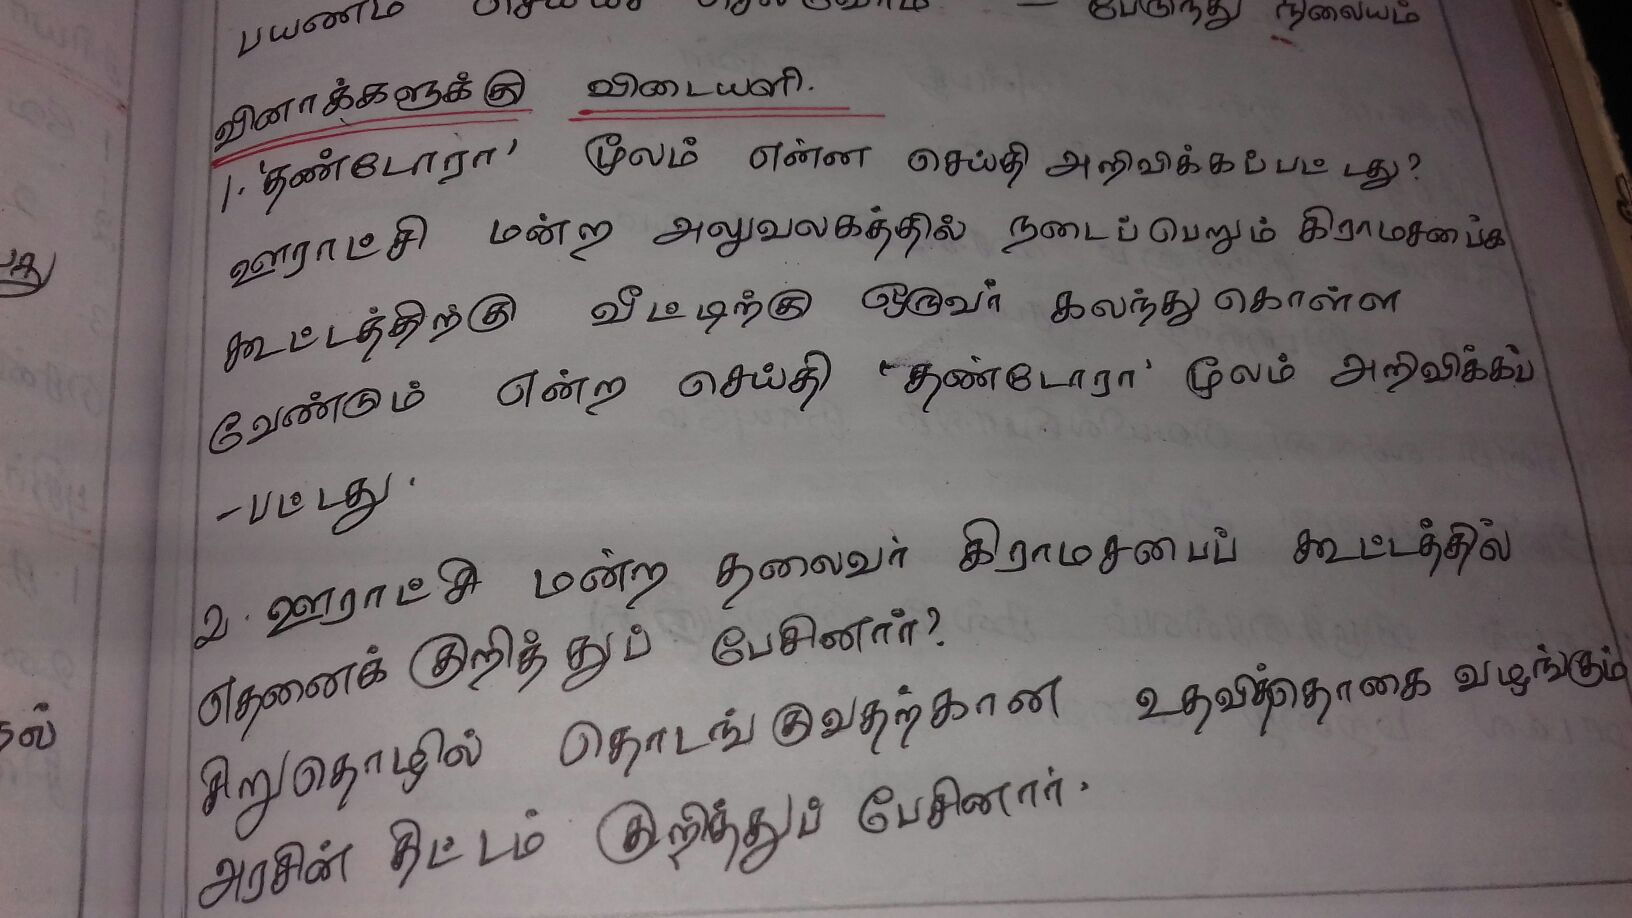 பயணம் செய்யச் செல்லுவோம் - பேருந்து நிலையம்
வினாக்களுக்கு விடையளி.
1. 'தண்டோரா' மூலம் என்ன செய்தி அறிவிக்கப்பட்டது?
ஊராட்சி மன்ற அலுவலகத்தில் நடைப்பெறும் கிராமசபைக்
கூட்டத்திற்கு வீட்டிற்கு ஒருவர் கலந்து கொள்ள
வேண்டும் என்ற செய்தி 'தண்டோரா' மூலம் அறிவிக்கப்
-பட்டது.
2. ஊராட்சி மன்ற தலைவர் கிராமசபைப் கூட்டத்தில்
எதனைக் குறித்துப் பேசினார்?
சிறுதொழில் தொடங்குவதற்கான உதவித்தொகை வழங்கும்
அரசின் திட்டம் குறித்துப் பேசினார்.